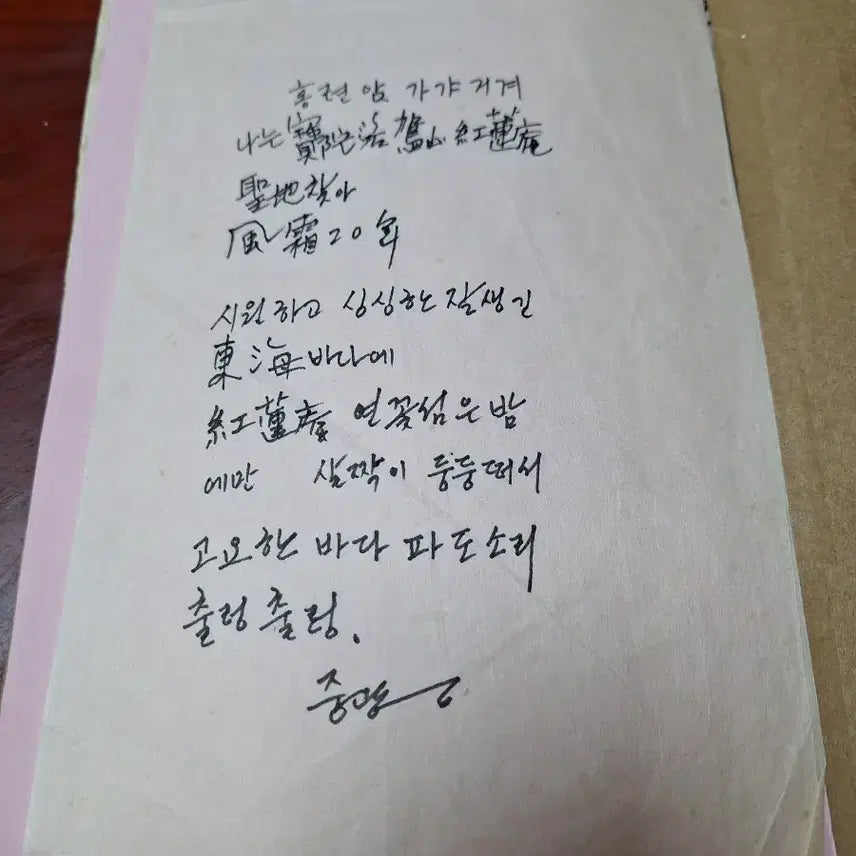 홍련암 가갸거겨
나는 寶陀洛 鴛山 紅蓮庵
聖地 찾아
風霜 20年
시원하고 싱싱한 잘생긴
東海바다에
紅蓮庵 연꽃섬은 밤
에만 살짝이 둥둥떠서
고요한 바다 파도소리
출렁출렁.
중광